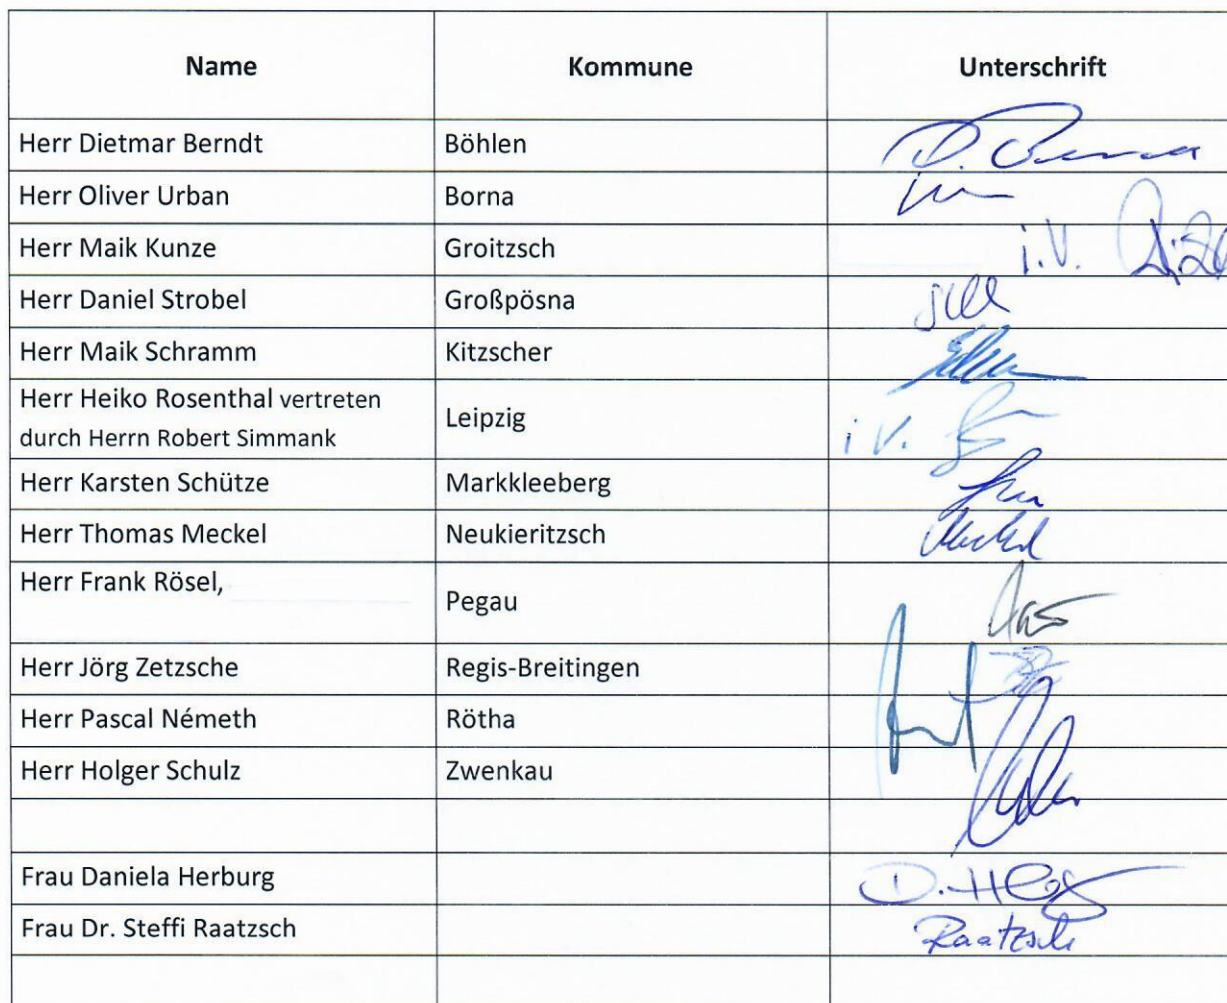 Name Kommune Unterschrift
Herr Dietmar Berndt Böhlen
Herr Oliver Urban Borna
Herr Maik Kunze Groitzsch i.V.
Herr Daniel Strobel Großpösna
Herr Maik Schramm Kitzscher
Herr Heiko Rosenthal vertreten
durch Herrn Robert Simmank Leipzig i.V.
Herr Karsten Schütze Markkleeberg
Herr Thomas Meckel Neukieritzsch Meckel
Herr Frank Rösel, Pegau
Herr Jörg Zetzsche Regis-Breitingen
Herr Pascal Németh Rötha
Herr Holger Schulz Zwenkau
Frau Daniela Herburg
Frau Dr. Steffi Raatzsch Raatzsch